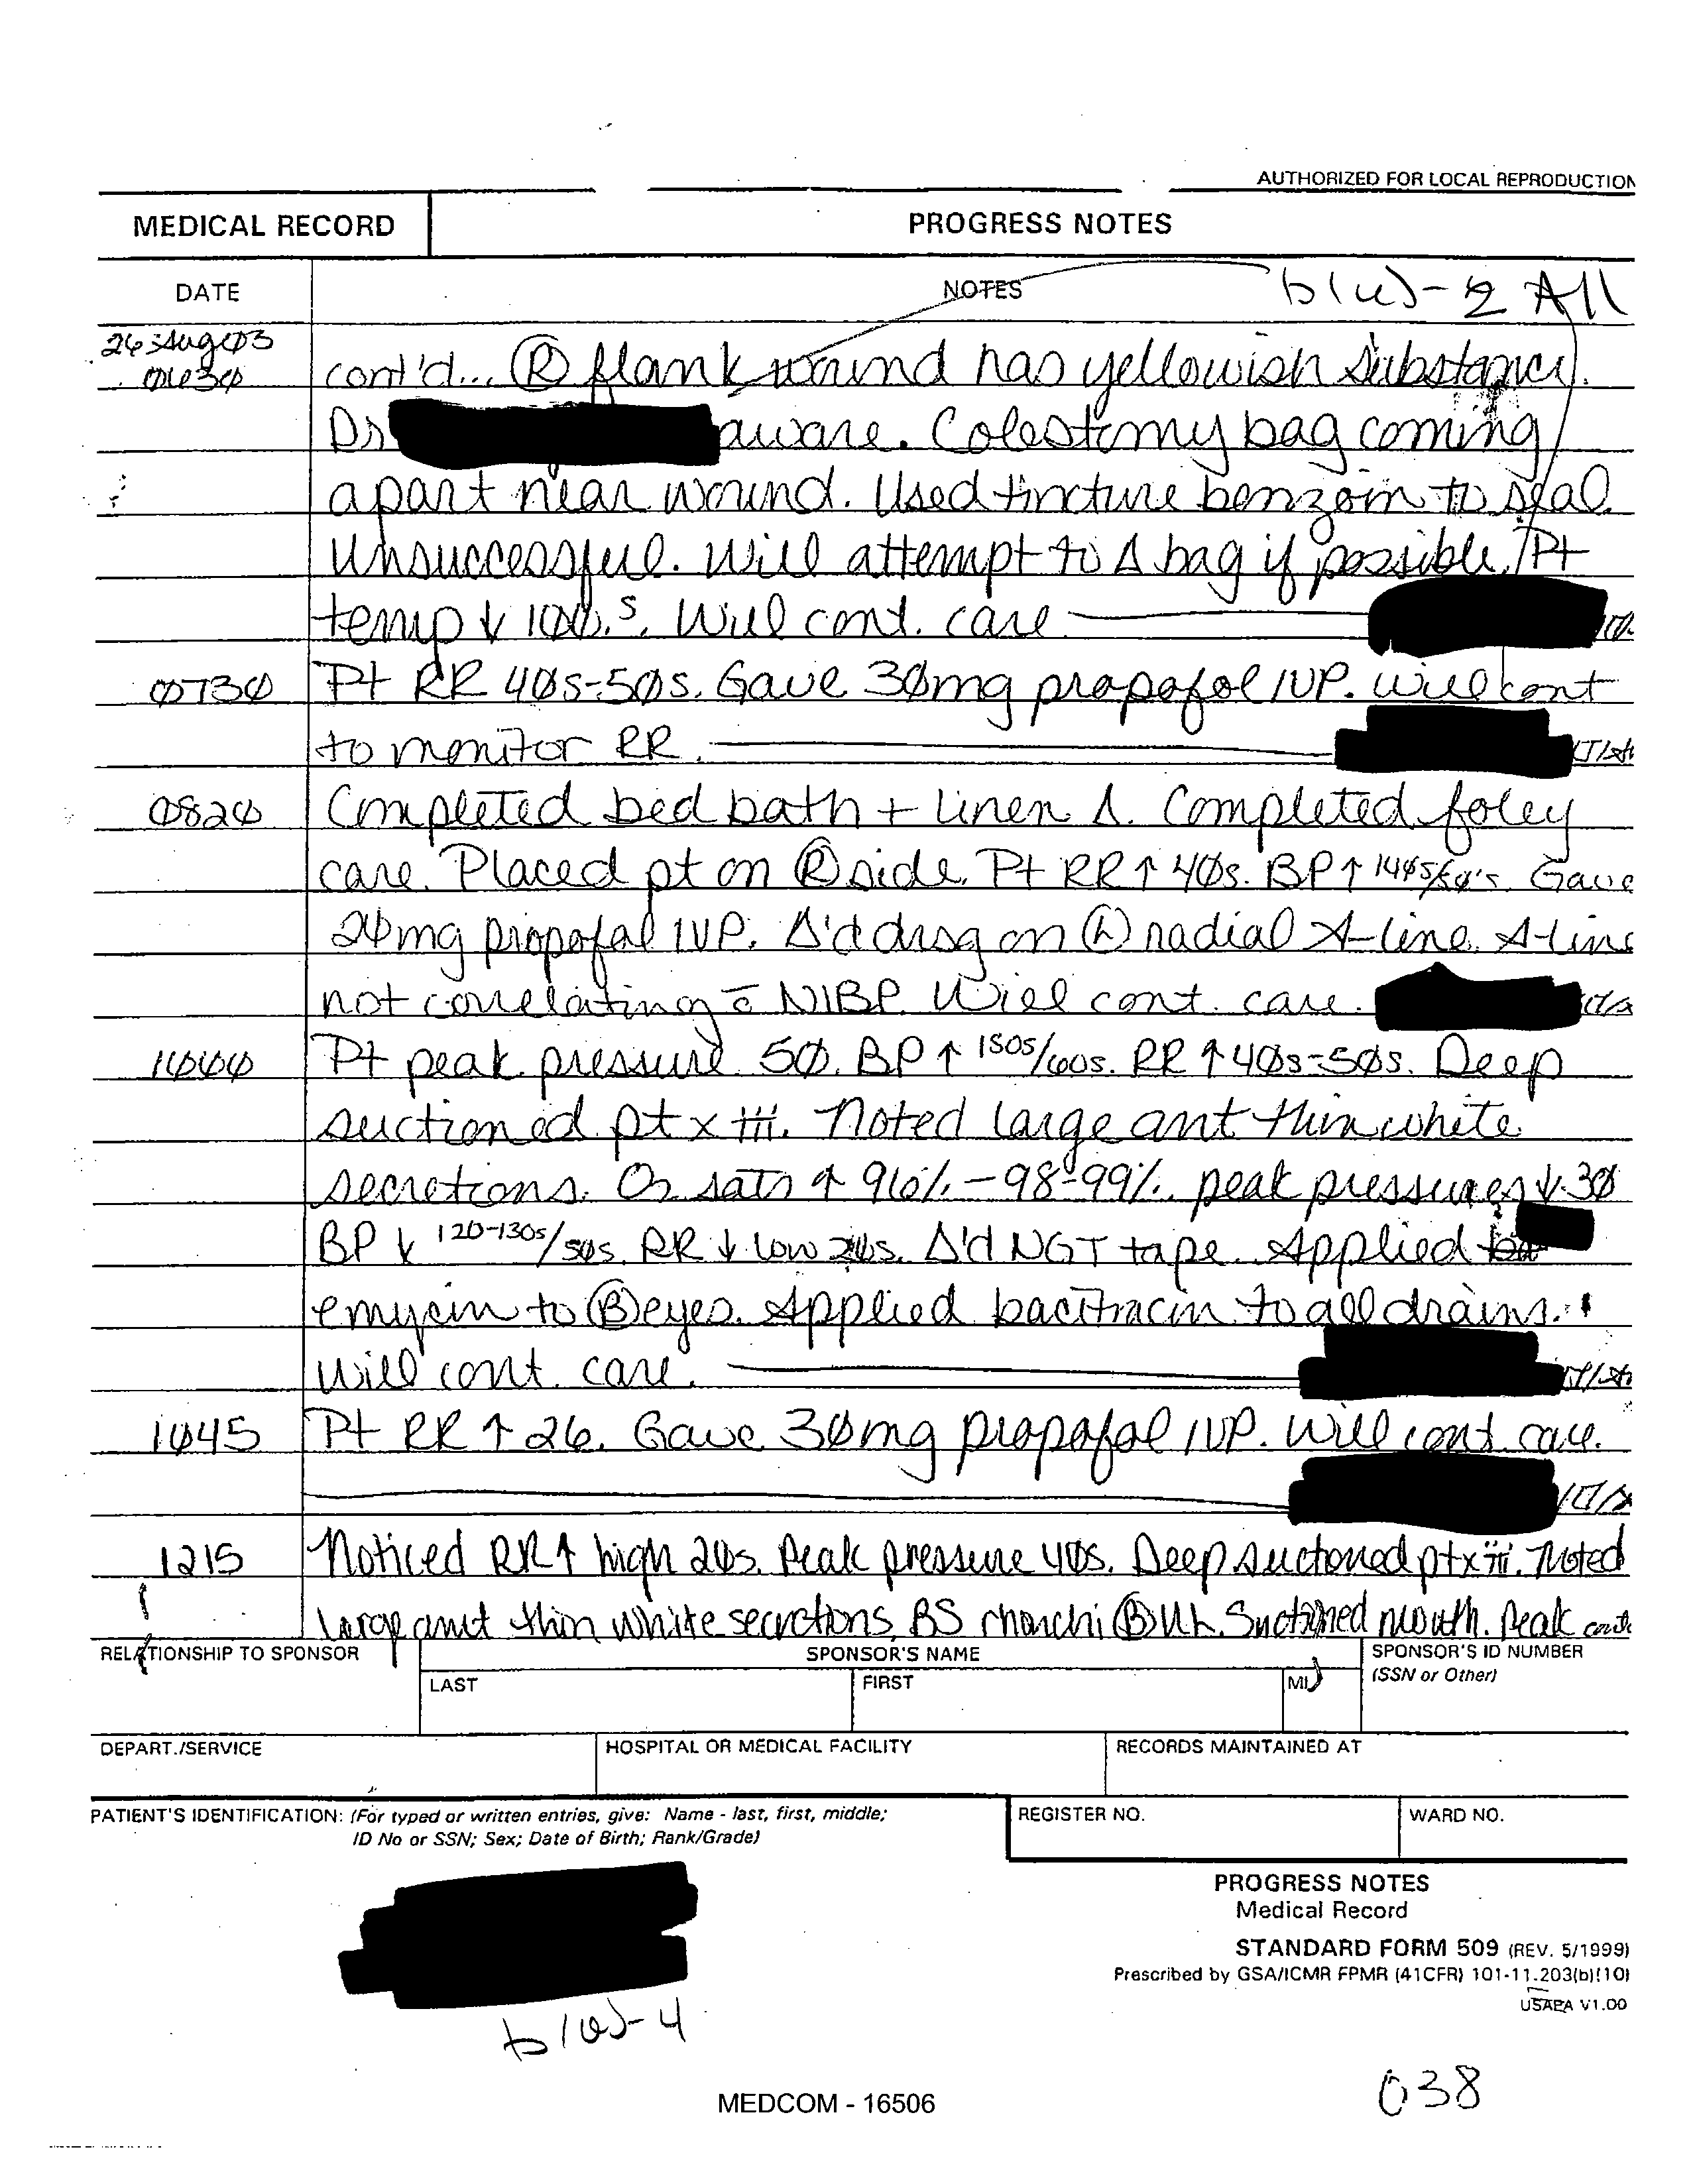 AUTHORIZED FOR LOCAL REPRODUCTION
MEDICAL RECORD PROGRESS NOTES
DATE NOTES b(6)-2 All
26 Aug 03
0630 cont'd... Ⓡ flank wound has yellowish substance.
Dr aware. Colostomy bag coming
apart near wound. Used tincture benzoin to seal.
Unsuccessful. Will attempt to Δ bag if possible. Pt
temp ↓ 100.5. Will cont. care
0730 Pt RR 40s-50s. Gave 30mg propofol IVP. Will cont
to monitor RR.
0820 Completed bed bath + linen Δ. Completed foley
care. Placed pt on Ⓡ side. Pt RR ↑ 40s. BP ↑ 140s/50's. Gave
20mg propofol IVP. Δ'd drsg on Ⓛ radial A-line. A-line
not correlating c̄ NIBP. Will cont. care.
1000 Pt peak pressure 50. BP ↑ 150s/60s. RR ↑ 40s-50s. Deep
suctioned pt x iii. Noted large amt thin white
secretions. O2 sats ↑ 96% - 98-99%. peak pressures ↓ 30
BP ↓ 120-130s/50s. RR ↓ low 20s. Δ'd NGT tape. Applied
emycin to Ⓑ eyes. Applied bacitracin to all drains.
Will cont. care.
1045 Pt RR ↑ 26. Gave 30mg propofol IVP. Will cont. care.
1215 Noticed RR ↑ high 20s. Peak pressure 40s. Deep suctioned pt x iii. Noted
large amt thin white secretions. BS rhonchi Ⓑ UL. Suctioned mouth. Peak
RELATIONSHIP TO SPONSOR SPONSOR'S NAME SPONSOR'S ID NUMBER
LAST FIRST MI (SSN or Other)
DEPART./SERVICE HOSPITAL OR MEDICAL FACILITY RECORDS MAINTAINED AT
PATIENT'S IDENTIFICATION: (For typed or written entries, give: Name - last, first, middle; REGISTER NO. WARD NO.
ID No or SSN; Sex; Date of Birth; Rank/Grade)
PROGRESS NOTES
Medical Record
STANDARD FORM 509 (REV. 5/1999)
Prescribed by GSA/ICMR FPMR (41CFR) 101-11.203(b)(10)
USAPA V1.00
b(6)-4
038
MEDCOM - 16506